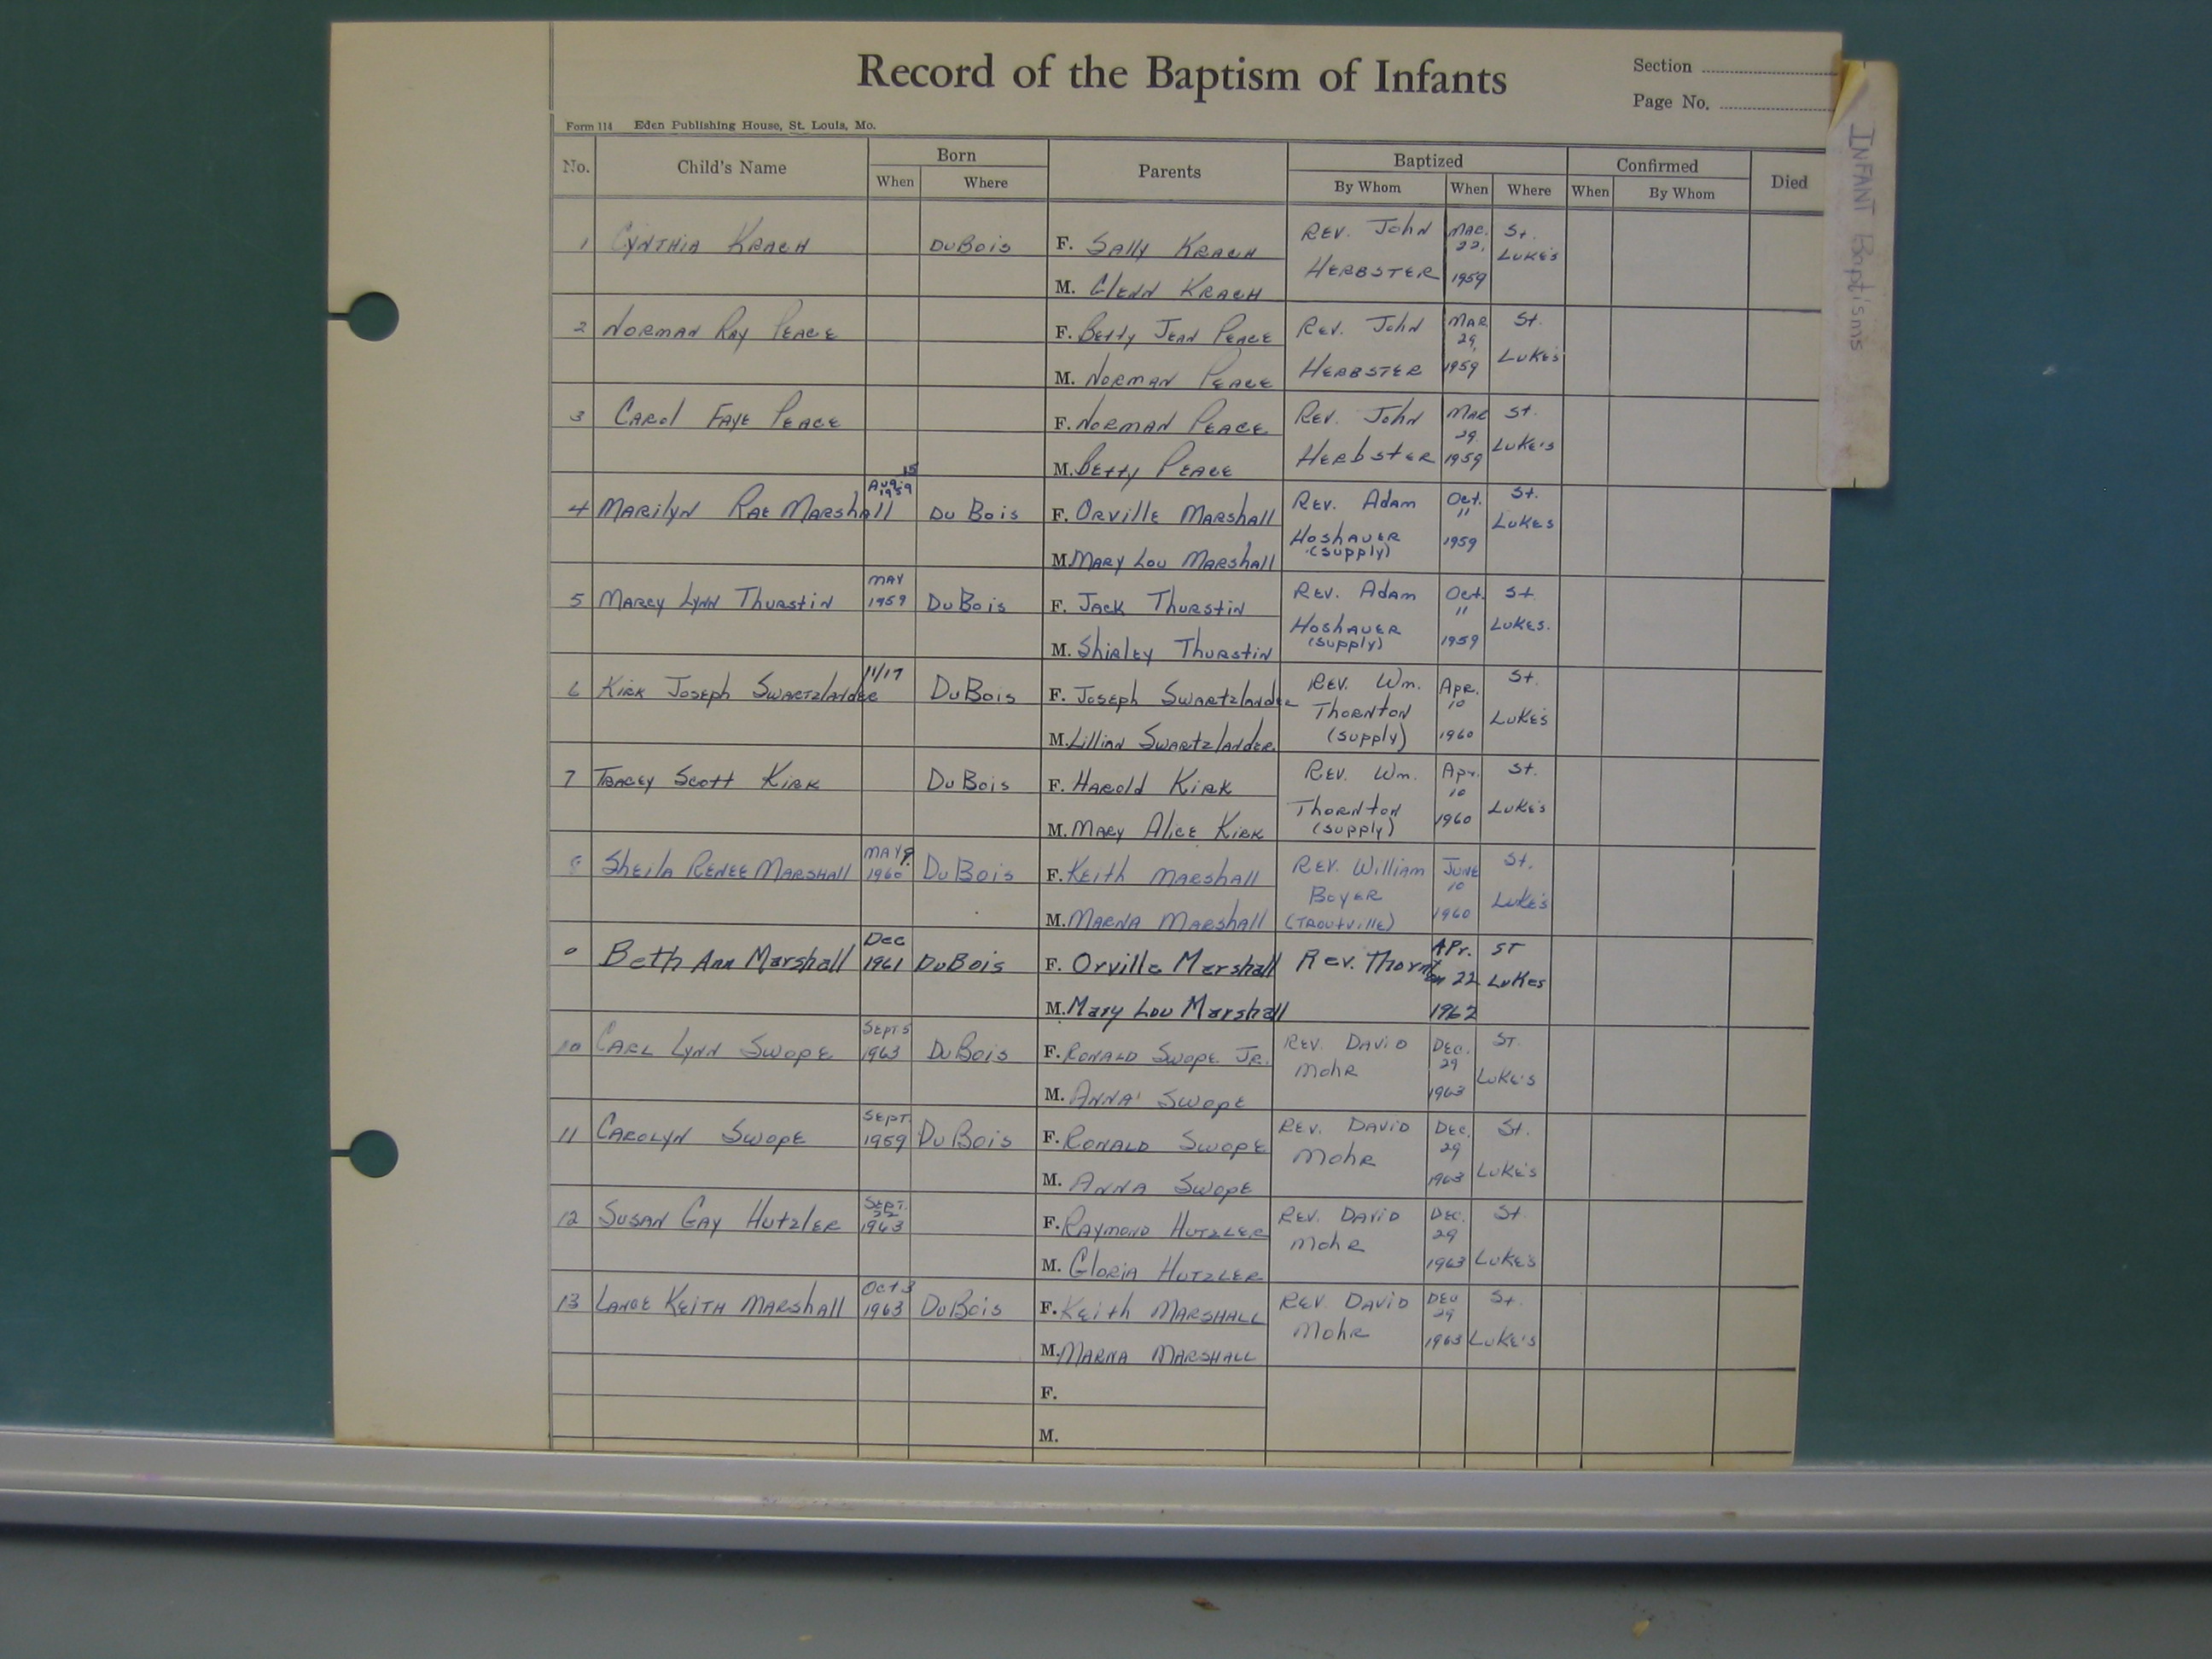 Record of the Baptism of Infants
Section
Page No.
Form 114 Eden Publishing House, St. Louis, Mo.
INFANT Baptisms
No. Child's Name Born Parents Baptized Confirmed Died
When Where By Whom When Where When By Whom
1 CYNTHIA KRACH DUBOIS F. SALLY KRACH REV. JOHN HERBSTER MAR. 22, 1959 St. LUKE'S
M. GLENN KRACH
2 NORMAN RAY PEACE F. BETTY JEAN PEACE REV. JOHN HERBSTER MAR 29, 1959 St. LUKE'S
M. NORMAN PEACE
3 CAROL FAYE PEACE F. NORMAN PEACE REV. JOHN HERBSTER MAR 29. 1959 St. LUKE'S
M. BETTY PEACE
4 MARILYN RAE MARSHALL AUG. 15 1959 DU BOIS F. ORVILLE MARSHALL REV. ADAM HOSHAUER (SUPPLY) Oct. 11 1959 St. LUKES
M. MARY LOU MARSHALL
5 MARCY LYNN THURSTIN MAY 1959 DUBOIS F. JACK THURSTIN REV. ADAM HOSHAUER (SUPPLY) Oct. 11 1959 St LUKES.
M. SHIRLEY THURSTIN
6 KIRK JOSEPH SWARTZLANDER 11/17 DUBOIS F. JOSEPH SWARTZLANDER REV. WM. THORNTON (SUPPLY) APR. 10 1960 St. LUKE'S
M. LILLIAN SWARTZLANDER
7 TRACEY SCOTT KIRK DUBOIS F. HAROLD KIRK REV. WM. THORNTON (SUPPLY) Apr. 10 1960 St. LUKE'S
M. MARY ALICE KIRK
8 SHEILA RENEE MARSHALL MAY 9. 1960 DUBOIS F. KEITH MARSHALL REV. WILLIAM BOYER (TROUTVILLE) JUNE 10 1960 St. LUKE'S
M. MARNA MARSHALL
Beth Ann Marshall Dec 1961 DuBois F. Orville Marshall Rev. Thornton APr. 22 1962 ST LUKes
M. Mary Lou Marshall
10 CARL LYNN SWOPE SEPT 5 1963 DUBOIS F. RONALD SWOPE JR. REV. DAVID MOHR DEC. 29 1963 ST. LUKE'S
M. ANNA SWOPE
11 CAROLYN SWOPE SEPT. 1959 DUBOIS F. RONALD SWOPE REV. DAVID MOHR DEC. 29 1963 St. LUKE'S
M. ANNA SWOPE
12 SUSAN GAY HUTZLER SEPT. 22 1963 F. RAYMOND HUTZLER REV. DAVID MOHR DEC. 29 1963 St. LUKE'S
M. GLORIA HUTZLER
13 LANCE KEITH MARSHALL OCT 3 1963 DUBOIS F. KEITH MARSHALL REV. DAVID MOHR DEC 29 1963 St. LUKE'S
M. MARNA MARSHALL
F.
M.